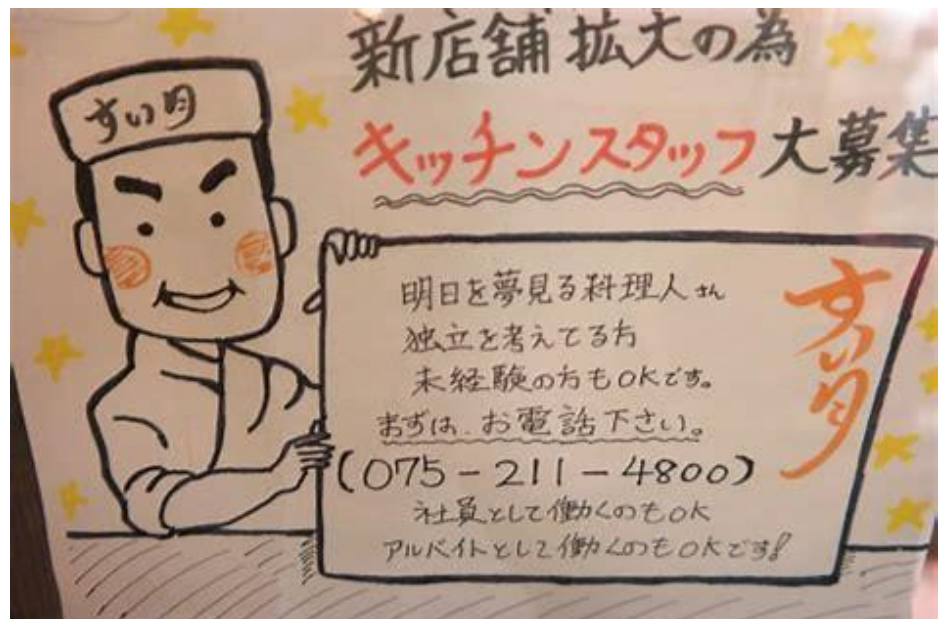 新店舗拡大の為
キッチンスタッフ大募集
すい月
明日を夢見る料理人さん
独立を考えてる方
未経験の方もOKです。
まずは、お電話下さい。
(075-211-4800)
社員として働くのもOK
アルバイトとして働くのもOKです!
すい月